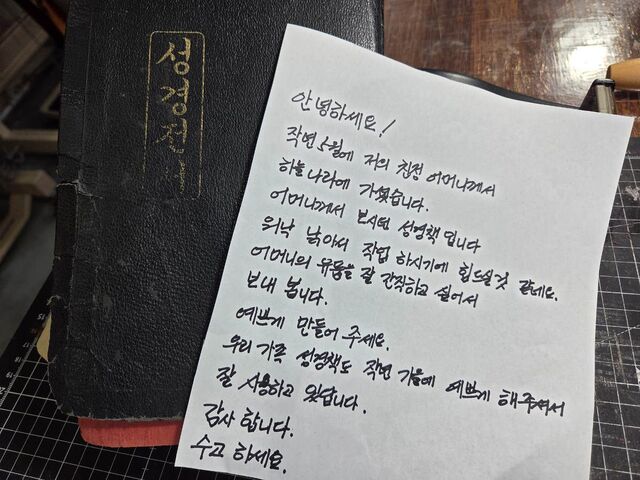 성경전
안녕하세요!
작년 5월에 저의 친정 어머니께서
하늘나라에 가셨습니다.
어머니께서 보시던 성경책 입니다
워낙 낡아서 작업 하시기에 힘드실것 같네요.
어머니의 유품을 잘 간직하고 싶어서
보내 봅니다.
예쁘게 만들어 주세요.
우리 가족 성경책도 작년 가을에 예쁘게 해주셔서
잘 사용하고 있답니다.
감사 합니다.
수고 하세요.